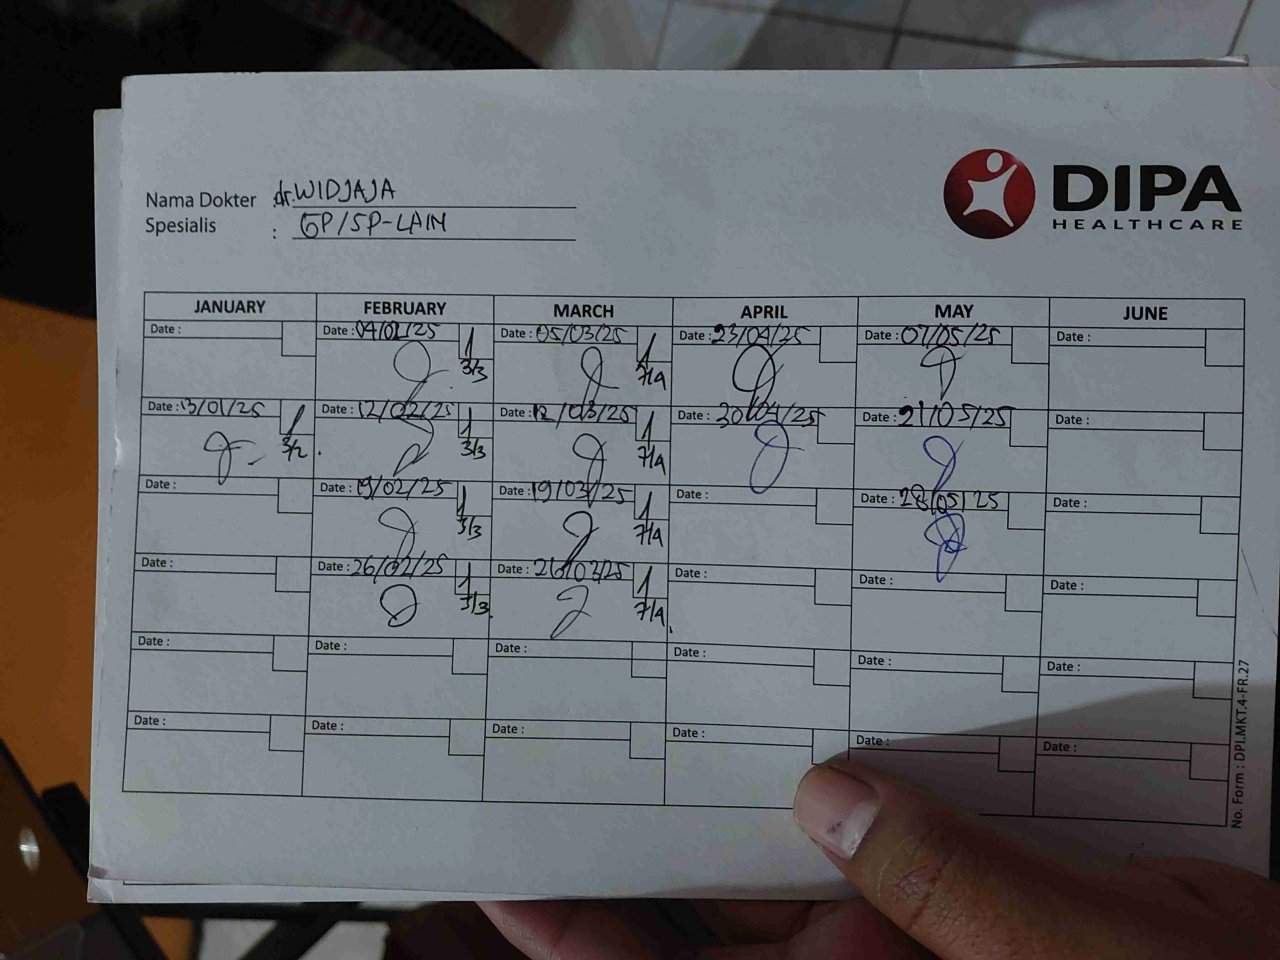 DIPA
HEALTHCARE
Nama Dokter : dr. WIDJAJA
Spesialis : GP/SP-LAIN
JANUARY FEBRUARY MARCH APRIL MAY JUNE
Date : Date : 04/02/25 Date : 05/03/25 Date : 23/04/25 Date : 07/05/25 Date :
3/3 7/4
Date : 13/01/25 Date : 12/02/25 Date : 12/03/25 Date : 30/04/25 Date : 21/05/25 Date :
3/2 3/3 7/4
Date : Date : 19/02/25 Date : 19/03/25 Date : Date : 28/05/25 Date :
3/3 7/4
Date : Date : 26/02/25 Date : 26/03/25 Date : Date : Date :
3/3 7/4
Date : Date : Date : Date : Date : Date :
Date : Date : Date : Date : Date : Date :
No. Form : DPI.MKT.4-FR.27